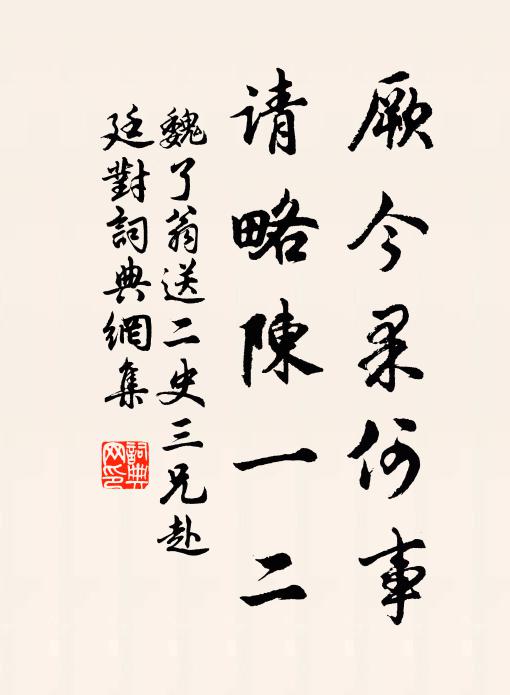 厥今果何事
请略陳一二
魏了翁送二史三兄赴
廷對詞典網集
詞典网印